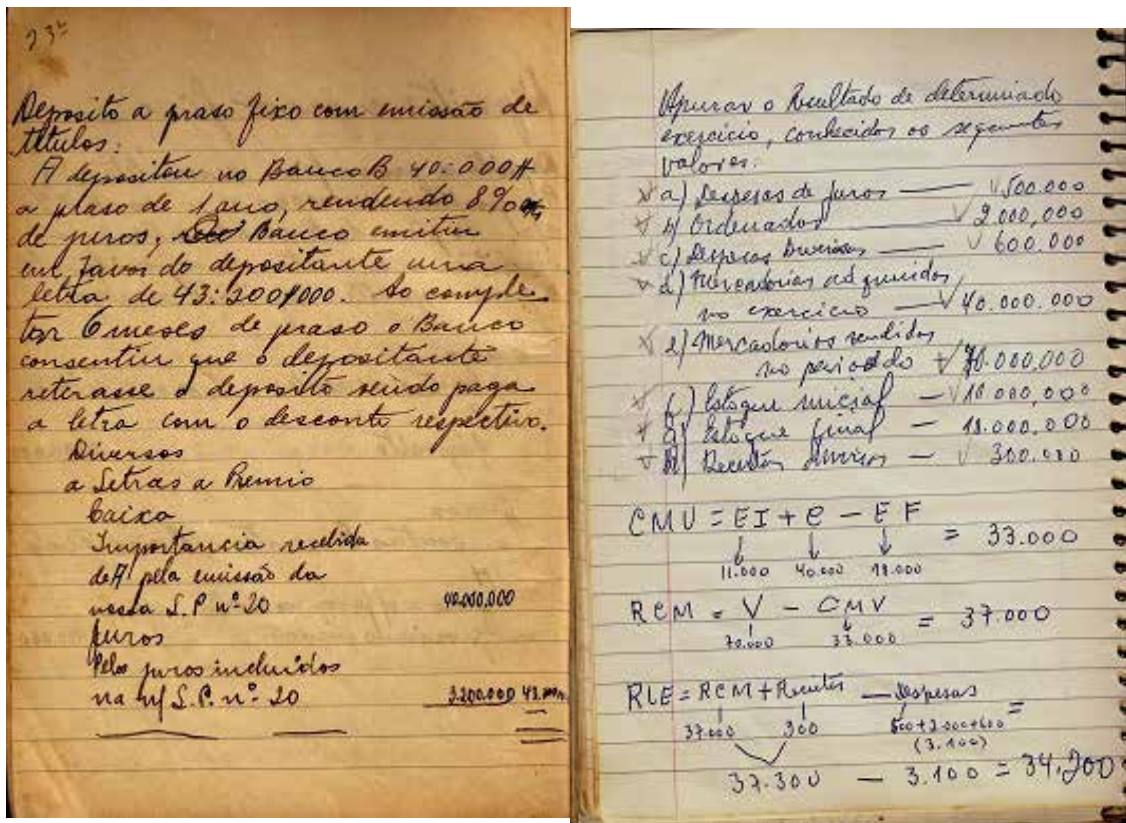 23º
Deposito a praso fixo com emissão de
titulos:
A depositou no Banco B 40:000$
a praso de 1 ano, rendendo 8%
de juros, Banco emitiu
em favor do depositante uma
letra de 43:200$000. Ao comple
tar 6 meses de praso o Banco
consentiu que o depositante
retirasse o deposito sendo paga
a letra com o desconto respectivo.
Diversos
a Letras a Premio
Caixa
Importancia recebida
de A pela emissão da
nossa L.P. nº 20 40.000.000
Juros
Pelos juros incluidos
na n/ L.P. nº 20 3.200.000
Apurar o Resultado de determinado
exercício, conhecidos os seguintes
valores:
a) Despesas de juros — 500.000
b) Ordenados — 2.000,000
c) Despesas Diversas — 600.000
d) Mercadorias adquiridas
no exercício — 40.000.000
e) Mercadorias vendidas
no periodo 70.000,000
f) Estoque inicial — 000,000
g) Estoque final — 18.000.000
h) Receitas diversas — 300.000
CMV = EI + C - EF = 33.000
11.000 40.000 18.000
RCM = V - CMV = 37.000
70.000 33.000
RLE = RCM + Receitas - Despesas =
37.000 300 500+2.000+600
(3.100)
37.300 - 3.100 = 34.200